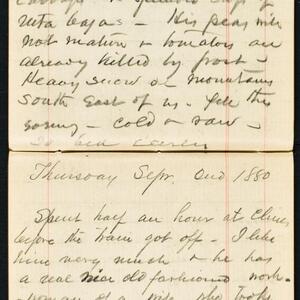 cabbage & splendid crop of
ruta bagas - His peas will
not mature & tomatoes are
already killed by frost -
Heavy snow on mountains
South East of us - felt this
- cold & raw -
Thursday Sepr. 2nd 1880
Spent half an hour at Elmer
before the train got off - I like
him very much & he has
a real nice old fashioned work-
woman of a wife who looks